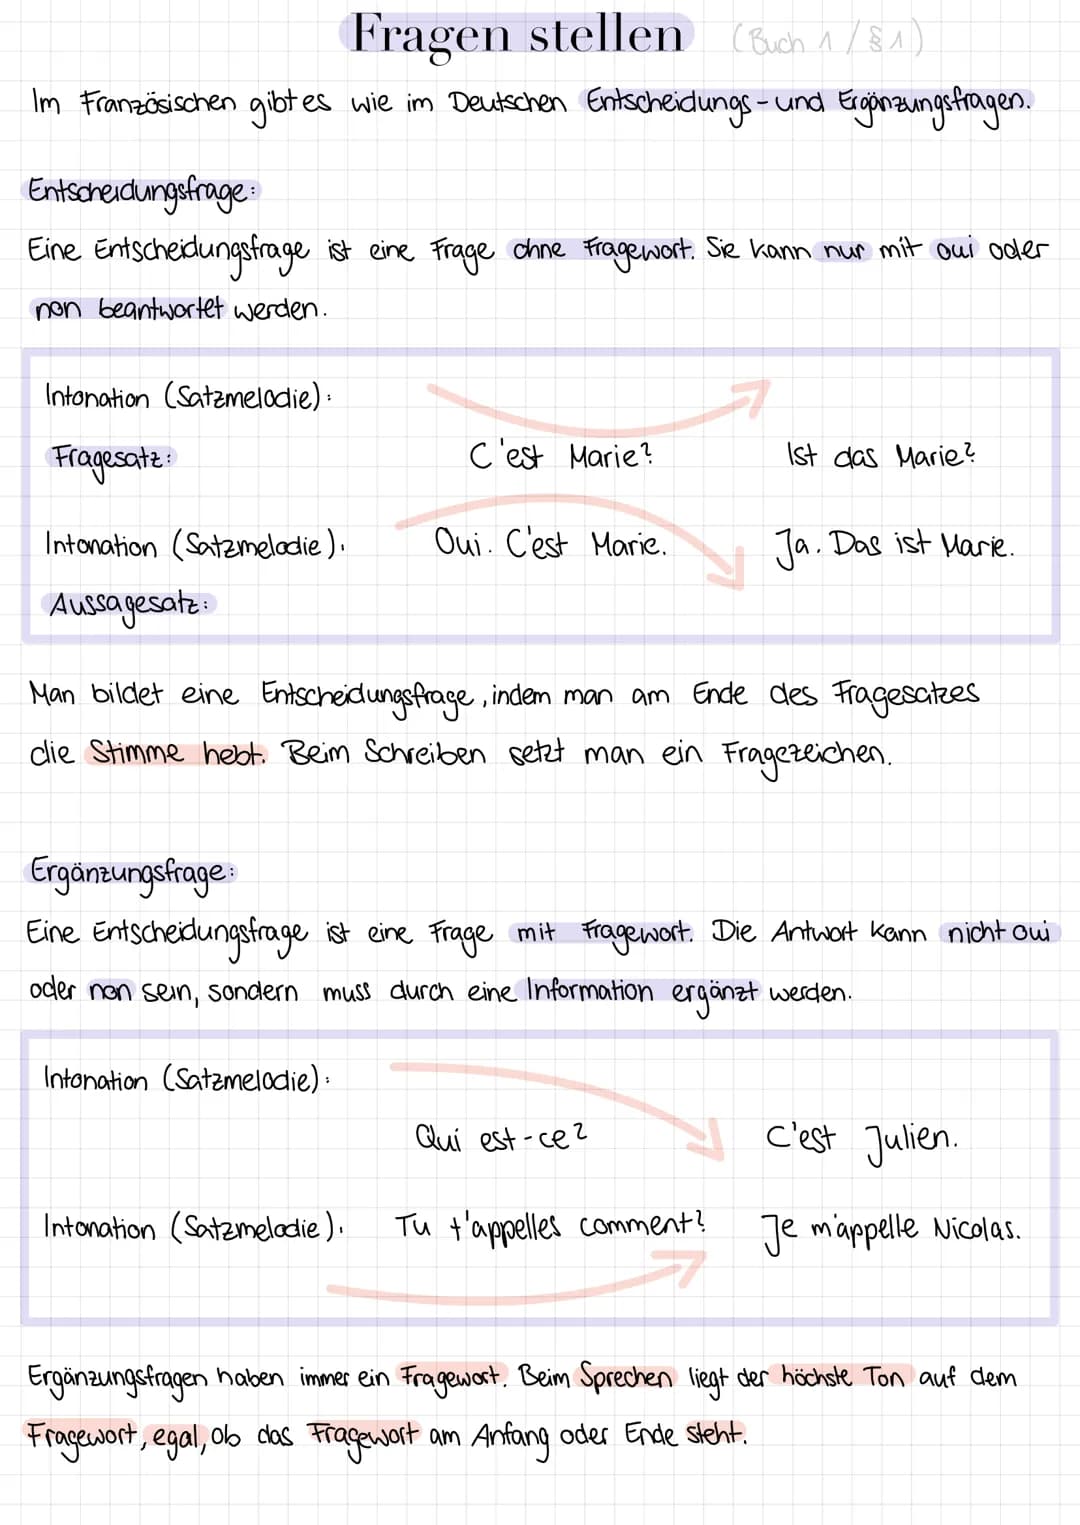 Fragen stellen (Buch 1 / § 1)
Im Französischen gibt es wie im Deutschen Entscheidungs- und Ergänzungsfragen.
Entscheidungsfrage:
Eine Entscheidungsfrage ist eine Frage ohne Fragewort. Sie kann nur mit oui oder
non beantwortet werden.
Intonation (Satzmelodie):
Fragesatz: C'est Marie? Ist das Marie?
Intonation (Satzmelodie): Oui. C'est Marie. Ja. Das ist Marie.
Aussagesatz:
Man bildet eine Entscheidungsfrage, indem man am Ende des Fragesatzes
die Stimme hebt. Beim Schreiben setzt man ein Fragezeichen.
Ergänzungsfrage:
Eine Entscheidungsfrage ist eine Frage mit Fragewort. Die Antwort kann nicht oui
oder non sein, sondern muss durch eine Information ergänzt werden.
Intonation (Satzmelodie):
Qui est-ce? C'est Julien.
Intonation (Satzmelodie): Tu t'appelles comment? Je m'appelle Nicolas.
Ergänzungsfragen haben immer ein Fragewort. Beim Sprechen liegt der höchste Ton auf dem
Fragewort, egal, ob das Fragewort am Anfang oder Ende steht.